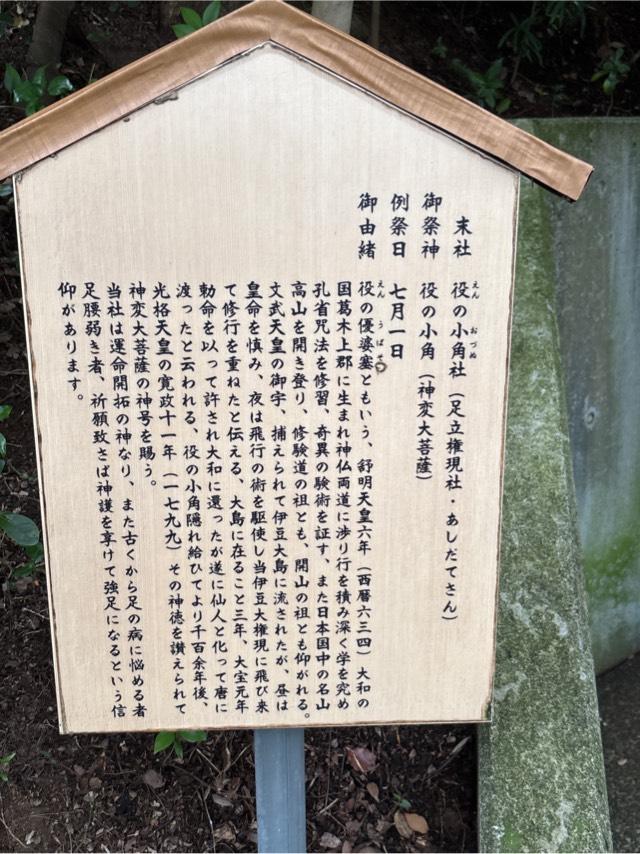 末社　役の小角社（足立権現社・あしだてさん）
えん　おづぬ
御祭神　役の小角（神変大菩薩）
例祭日　七月一日
御由緒　役の優婆塞ともいう、舒明天皇六年（西暦六三四）大和の
えん　うばそ
国葛木上郡に生まれ神仏両道に渉り行を積み深く学を究め
孔雀咒法を修習、奇異の験術を証す、また日本国中の名山
高山を開き登り、修験道の祖とも、開山の祖とも仰がれる。
文武天皇の御宇、捕えられて伊豆大島に流されたが、昼は
皇命を慎み、夜は飛行の術を駆使し当伊豆大権現に飛び来
て修行を重ねたと伝える、大島に在ること三年、大宝元年
勅命を以って許され大和に還ったが遂に仙人と化って唐に
渡ったと云われる、役の小角隠れ給ひてより千百余年後、
光格天皇の寛政十一年（一七九九）その神徳を讃えられて
神変大菩薩の神号を賜う。
当社は運命開拓の神なり、また古くから足の病に悩める者
足腰弱き者、祈願致さば神護を享けて強足になるという信
仰があります。